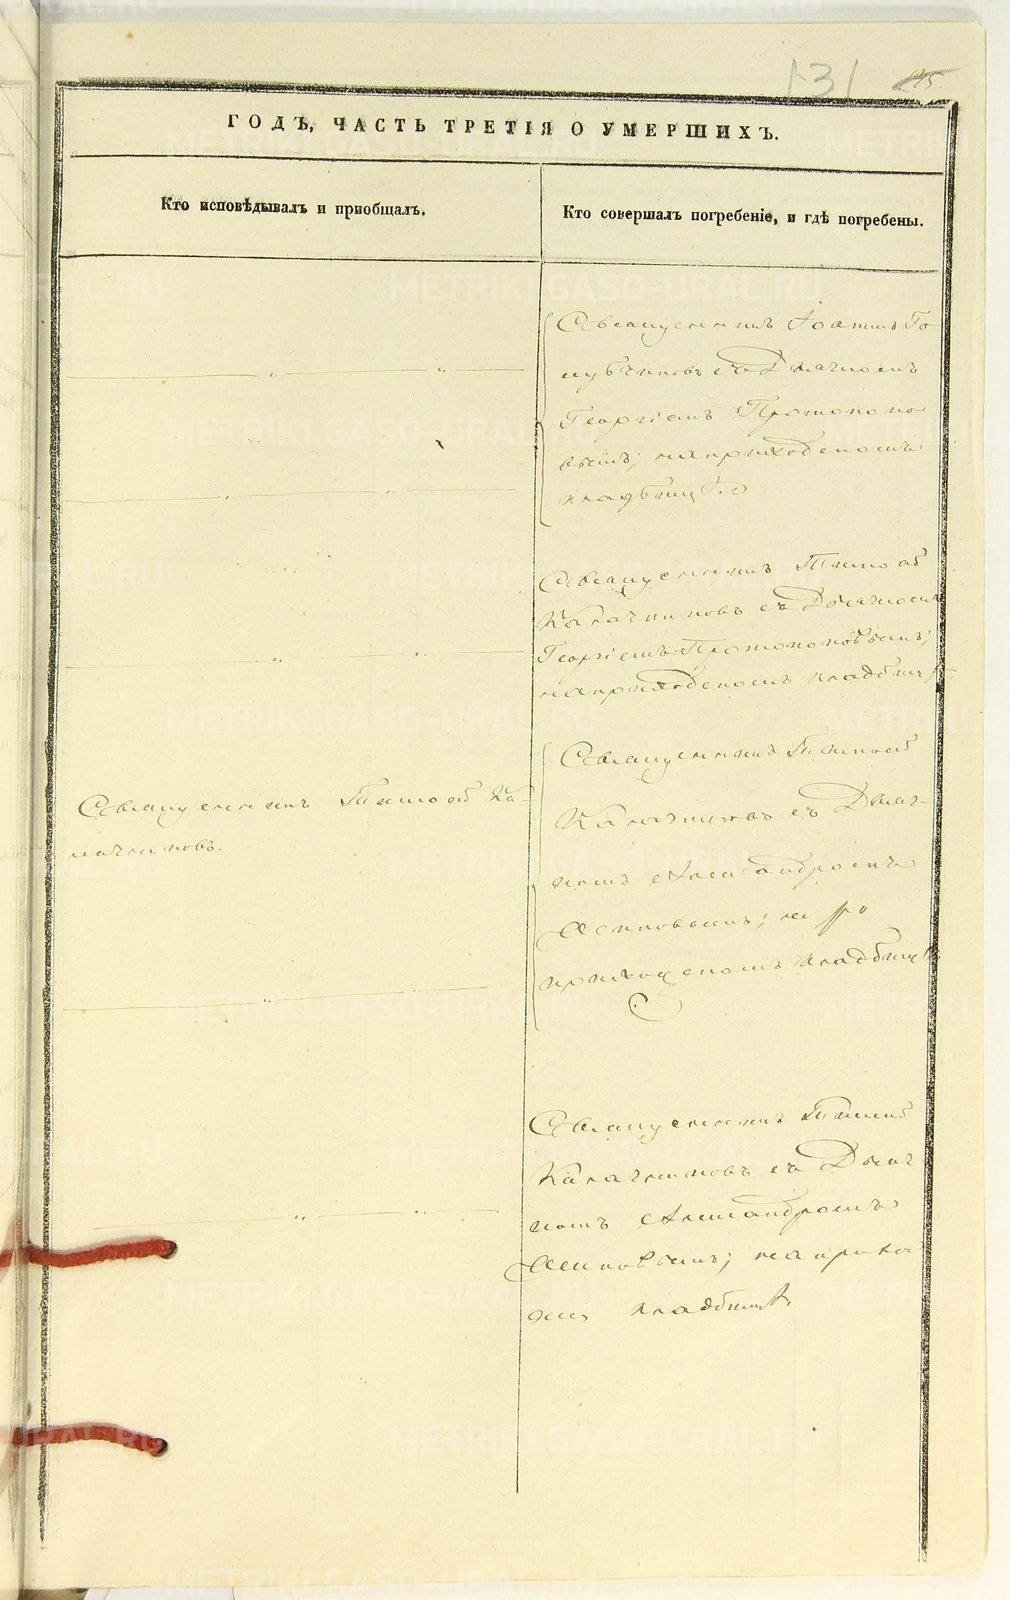 131 145.
ГОДЪ, ЧАСТЬ ТРЕТІЯ О УМЕРШИХЪ.
Кто исповѣдывалъ и приобщалъ.
Кто совершалъ погребеніе, и гдѣ погребены.
Священникъ Іоаннъ Го
лубчиковъ съ Дьячкомъ
Георгіемъ Протопопо
вымъ; на приходскомъ
кладбищѣ.
Священникъ Тимоѳей
Калачниковъ съ Дьячкомъ
Георгіемъ Протопоповымъ;
на приходскомъ кладбищѣ.
Священникъ Тимоѳей Ка-
лачниковъ.
Священникъ Тимоѳей
Калачниковъ съ Дьяч-
комъ Александромъ
на
приходскомъ кладбищѣ
Священникъ Тимоѳей
Калачниковъ съ Дьяч
комъ Александромъ
на прихо
кладбищѣ.
METRIKI.GASO-URAL.RU